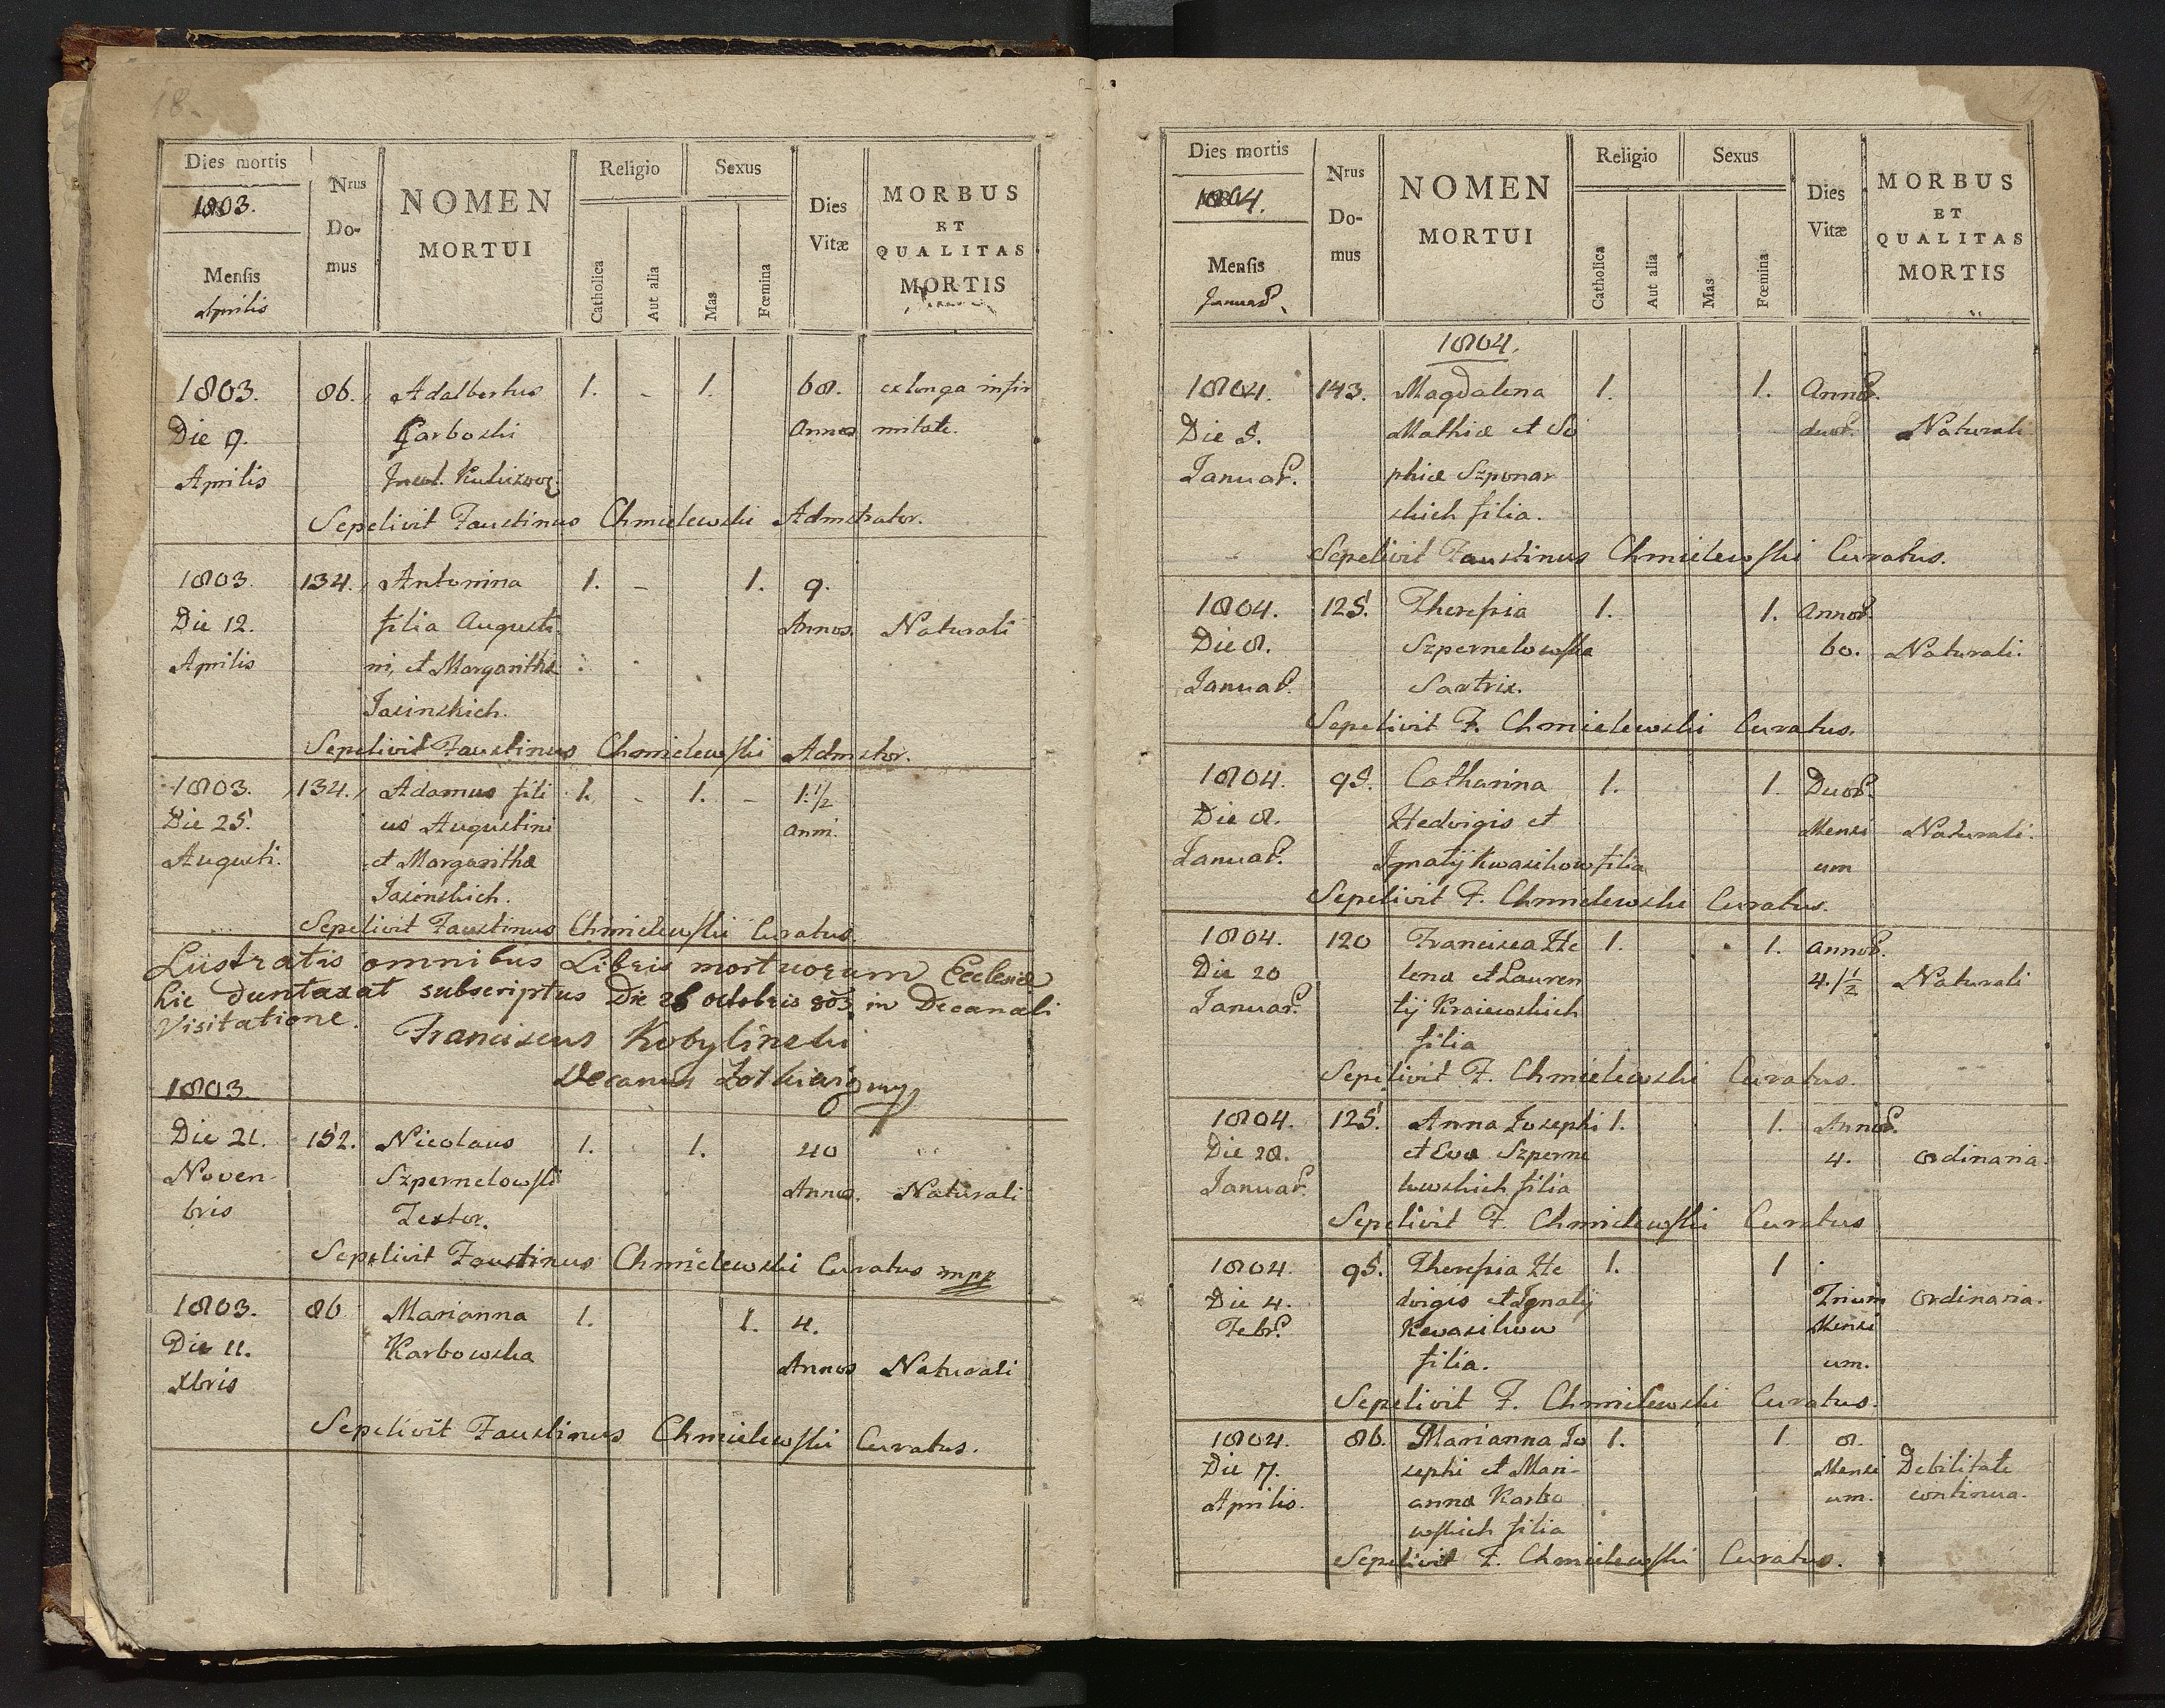 18.
Dies mortis
1803.
Mensis
Aprilis
Nrus
Do-
mus
NOMEN
MORTUI
Religio
Catholica
Aut alia
Sexus
Mas
Fœmina
Dies
Vitæ
MORBUS
ET
QUALITAS
MORTIS
1803. 86. Adalbertus 1. - 1. 68. ex longa infir
Die 9. Garboski Annos mitate.
Aprilis
Sepelivit Faustinus Chmielewski Admstrator.
1803 134. Antonina 1. - 1. 9.
Die 12. filia Augusti Annos. Naturali
Aprilis ni, et Margarithæ
Jasinskich.
Sepelivit Faustinus Chmielewski Admstor.
1803. 134. Adamus fili 1. - 1. - 1.1/2
Die 25. us Augustini anni.
Augusti. et Margarithæ
Jasinskich.
Sepelivit Faustinus Chmielewski Curatus.
Lustratis omnibus Libris mortuorum Ecclesiæ
hic duntaxat subscriptus Die 26 octobris 803 in Decanali
Visitatione.
Franciscus Kobylinski
Decanus mpp
1803
Die 21. 152. Nicolaus 1. 1. 40
Noven- Szpernelowski Annos. Naturali
bris Textor.
Sepelivit Faustinus Chmielewski Curatus mpp
1803. 86 Marianna 1. 1. 4.
Die 11. Karbowska Annos Naturali
Xbris
Sepelivit Faustinus Chmielewski Curatus.
Dies mortis
1804.
Mensis
Januar.
Nrus
Do-
mus
NOMEN
MORTUI
Religio
Catholica
Aut alia
Sexus
Mas
Fœmina
Dies
Vitæ
MORBUS
ET
QUALITAS
MORTIS
1804.
1804. 143. Magdalena 1. 1. Annor.
Die 5. Mathiæ et So duor. Naturali
Januar. phiæ Szponar
skich filia.
Sepelivit Faustinus Chmielewski Curatus.
1804. 125. Theresia 1. 1. annor.
Die 8. Szpernelowska 60. Naturali.
Januar. Sartrix.
Sepelivit F. Chmielewski Curatus.
1804. 95. Catharina 1. 1. Duor.
Die 8. Hedvigis et Mensi Naturali.
Januar. Ignatij Kwasikow filia um
Sepelivit F. Chmielewski Curatus.
1804. 120 Francisca He 1. 1. annor.
Die 20 lenæ et Lauren 4.1/2 Naturali
Januar. tij Kraiewskich
filia
Sepelivit F. Chmielewski Curatus.
1804. 125. Anna Josephi 1. 1. Annor.
Die 28. et Evæ Szperne 4. ordinaria.
Januar. lowskich filia
Sepelivit F. Chmielewski Curatus
1804. 95. Theresia He 1. 1
Die 4. dvigis et Ignatij Trium ordinaria.
Febr. Kwasikow Mensi
filia. um.
Sepelivit F. Chmielewski Curatus.
1804. 86. Marianna Jo 1. 1. 8.
Die 7. sephi et Mari- Mensi Debilitate
Aprilis. annæ Karbo um. continua.
wskich filia
Sepelivit F. Chmielewski Curatus.